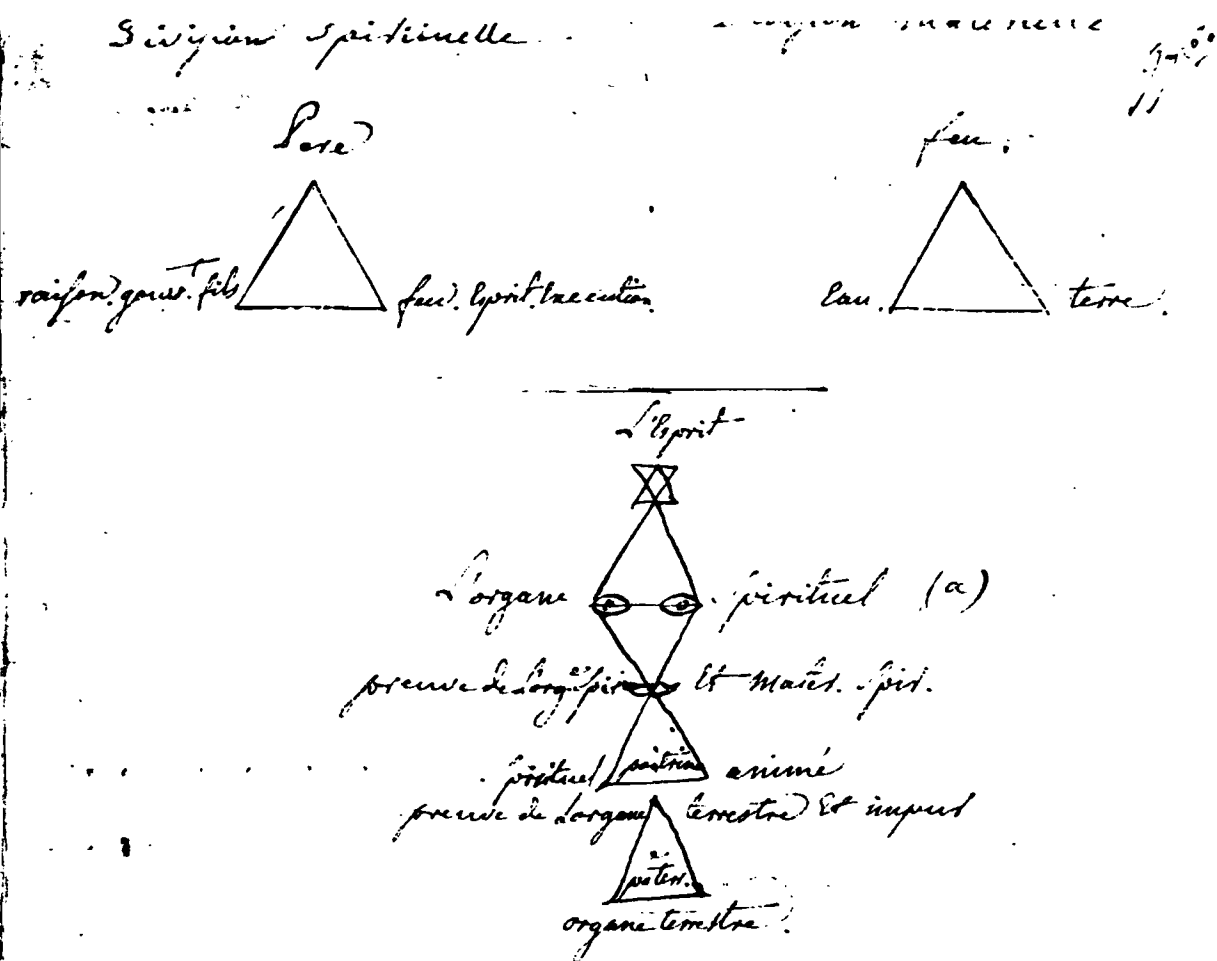 Division spirituelle
Division matérielle
Pere
feu.
raison. gouvt. fils
feu. Esprit. Execution.
Eau.
terre.
L'Esprit
L'organe spirituel (a)
preuve de L'orge. spir Et mater. spir.
spirituel poitrine animé
preuve de L'organe terrestre Et impur
organe terrestre.